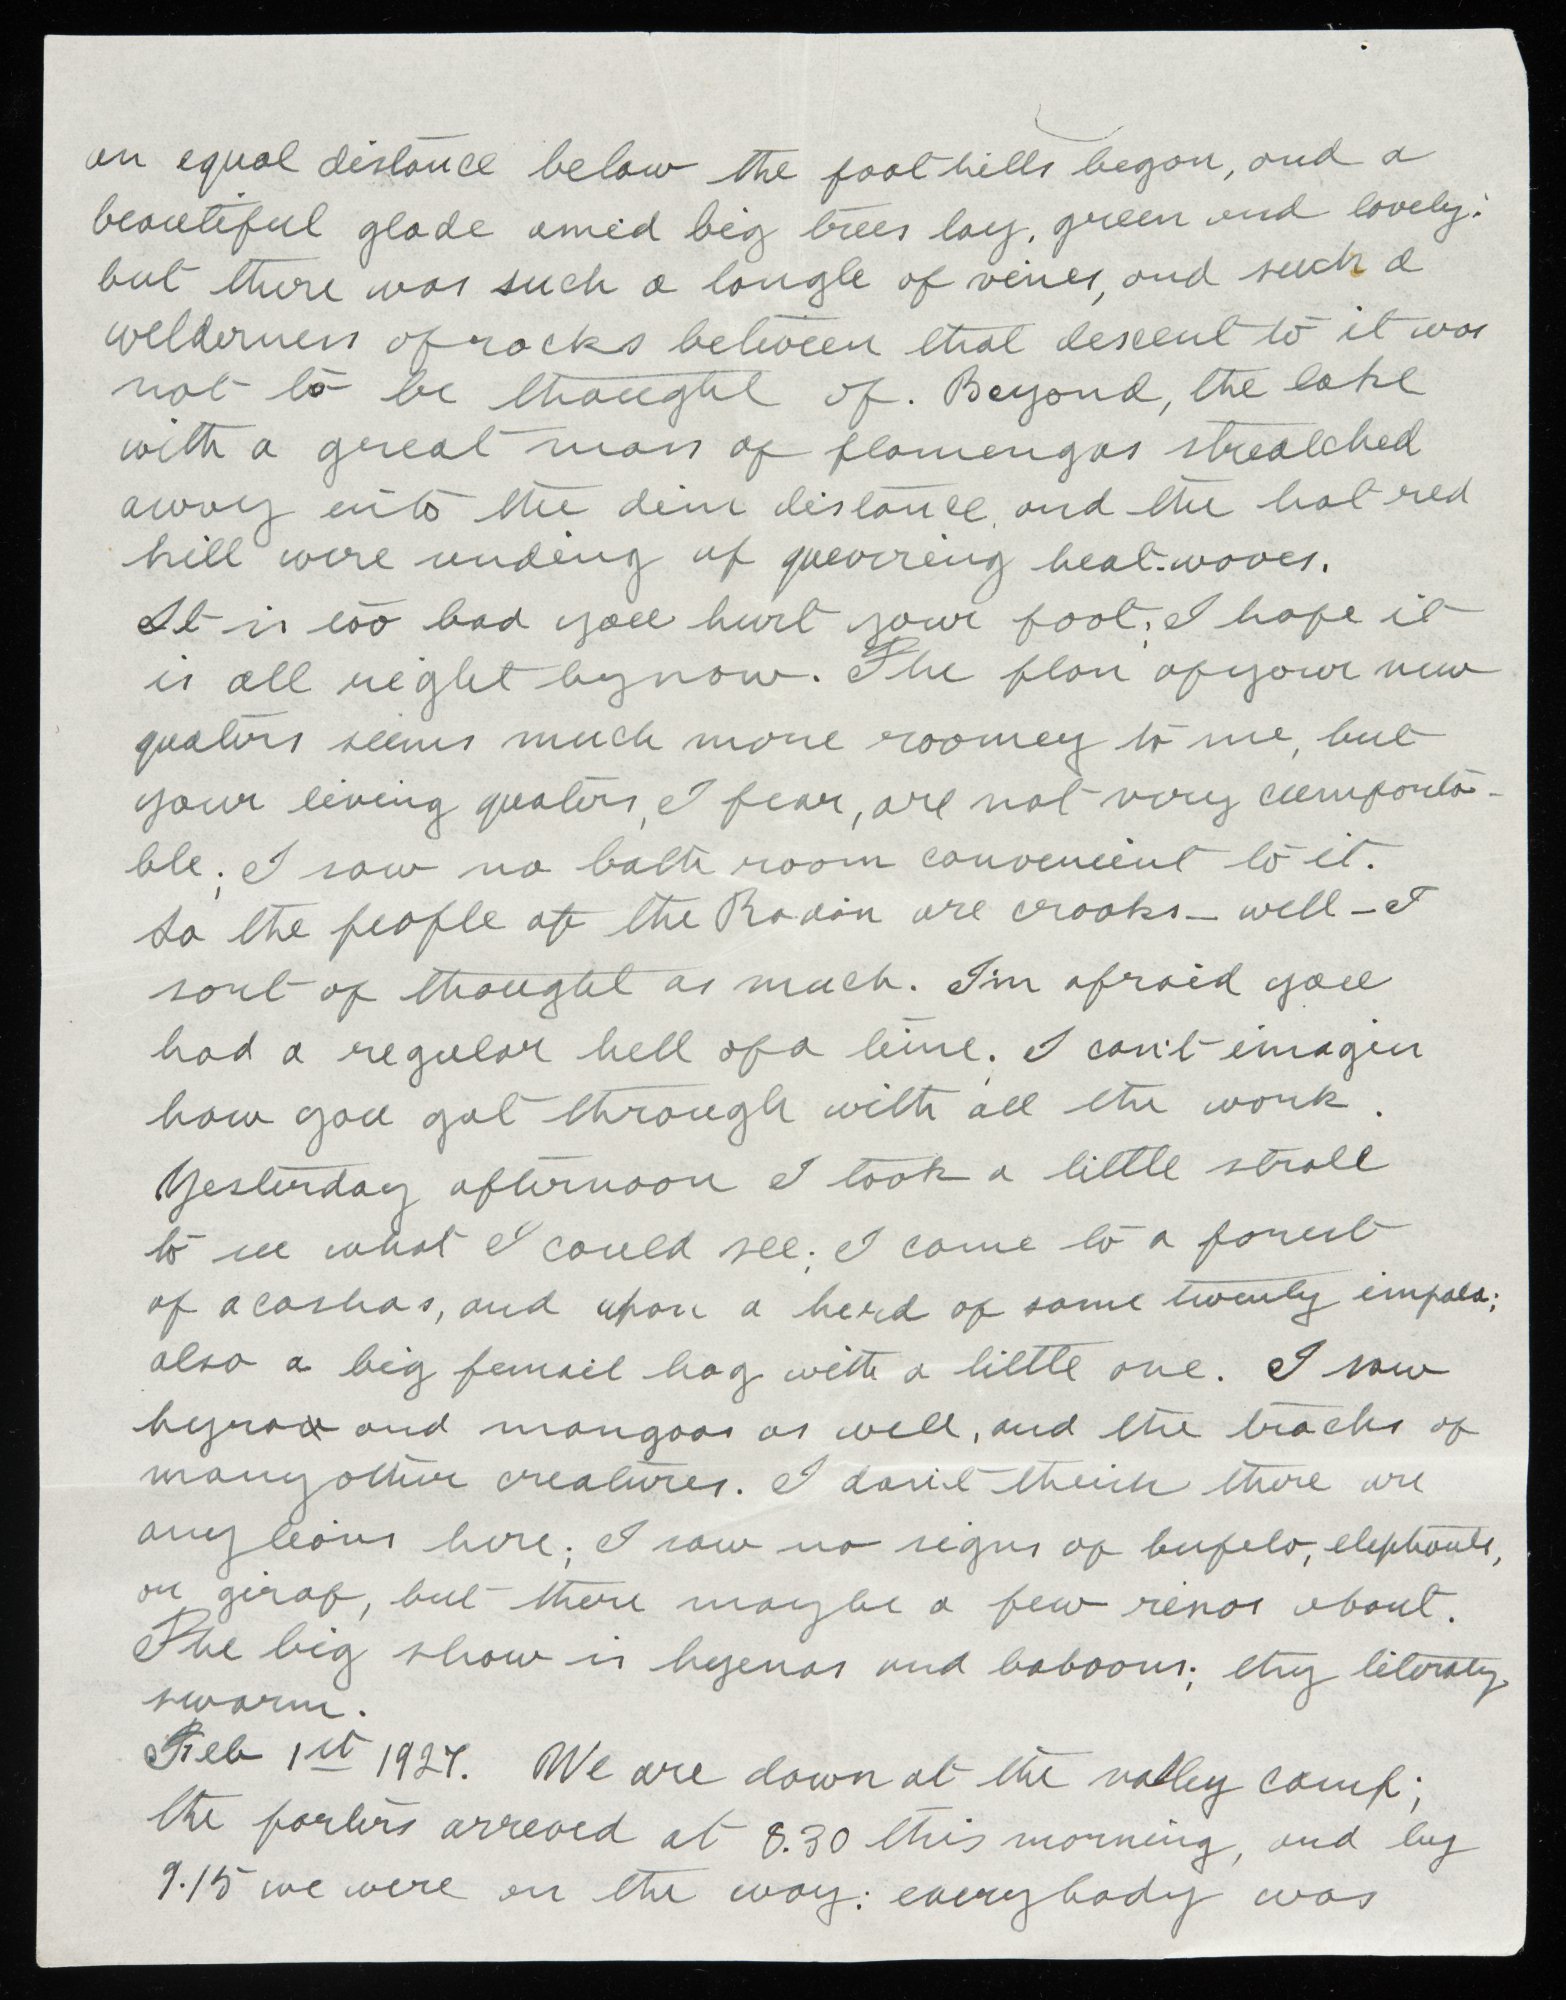 an equal distance below the foot hills began, and a
beautiful glade amid big trees lay, green and lovely:
but there was such a tangle of vines, and such a
wilderness of rocks between that descent to it was
not to be thought of. Beyond, the lake
with a great mass of flamengos streatched
away into the dim distance, and the hot red
hill were unding of quevering heat-waves.
It is too bad you hurt your foot; I hope it
is all right by now. The plan of your new
quaters seems much more roomey to me, but
your living quaters, I fear, are not very cumforta-
ble; I saw no bath room convenient to it.
So the people of the are crooks - well - I
sort of thought as much. I'm afraid you
had a regular hell of a time; I can't imagin
how you got through with all the work.
Yesterday afternoon I took a little stroll
to see what I could see; I came to a forest
of acashas, and upon a herd of some twenty impala;
also a big femail hog with a little one. I saw
hyrax and mongoos as well, and the tracks of
many other creatures. I don't think there are
any lions here; I saw no signs of bufelo, elephants,
or giraf, but there maybe a few rinos about.
The big show is hyenas and baboons; they literaly
swarm.
Feb 1st 1927. We are down at the valley camp;
the porters arreved at 8.30 this morning, and by
9.15 we were on the way: everybody was